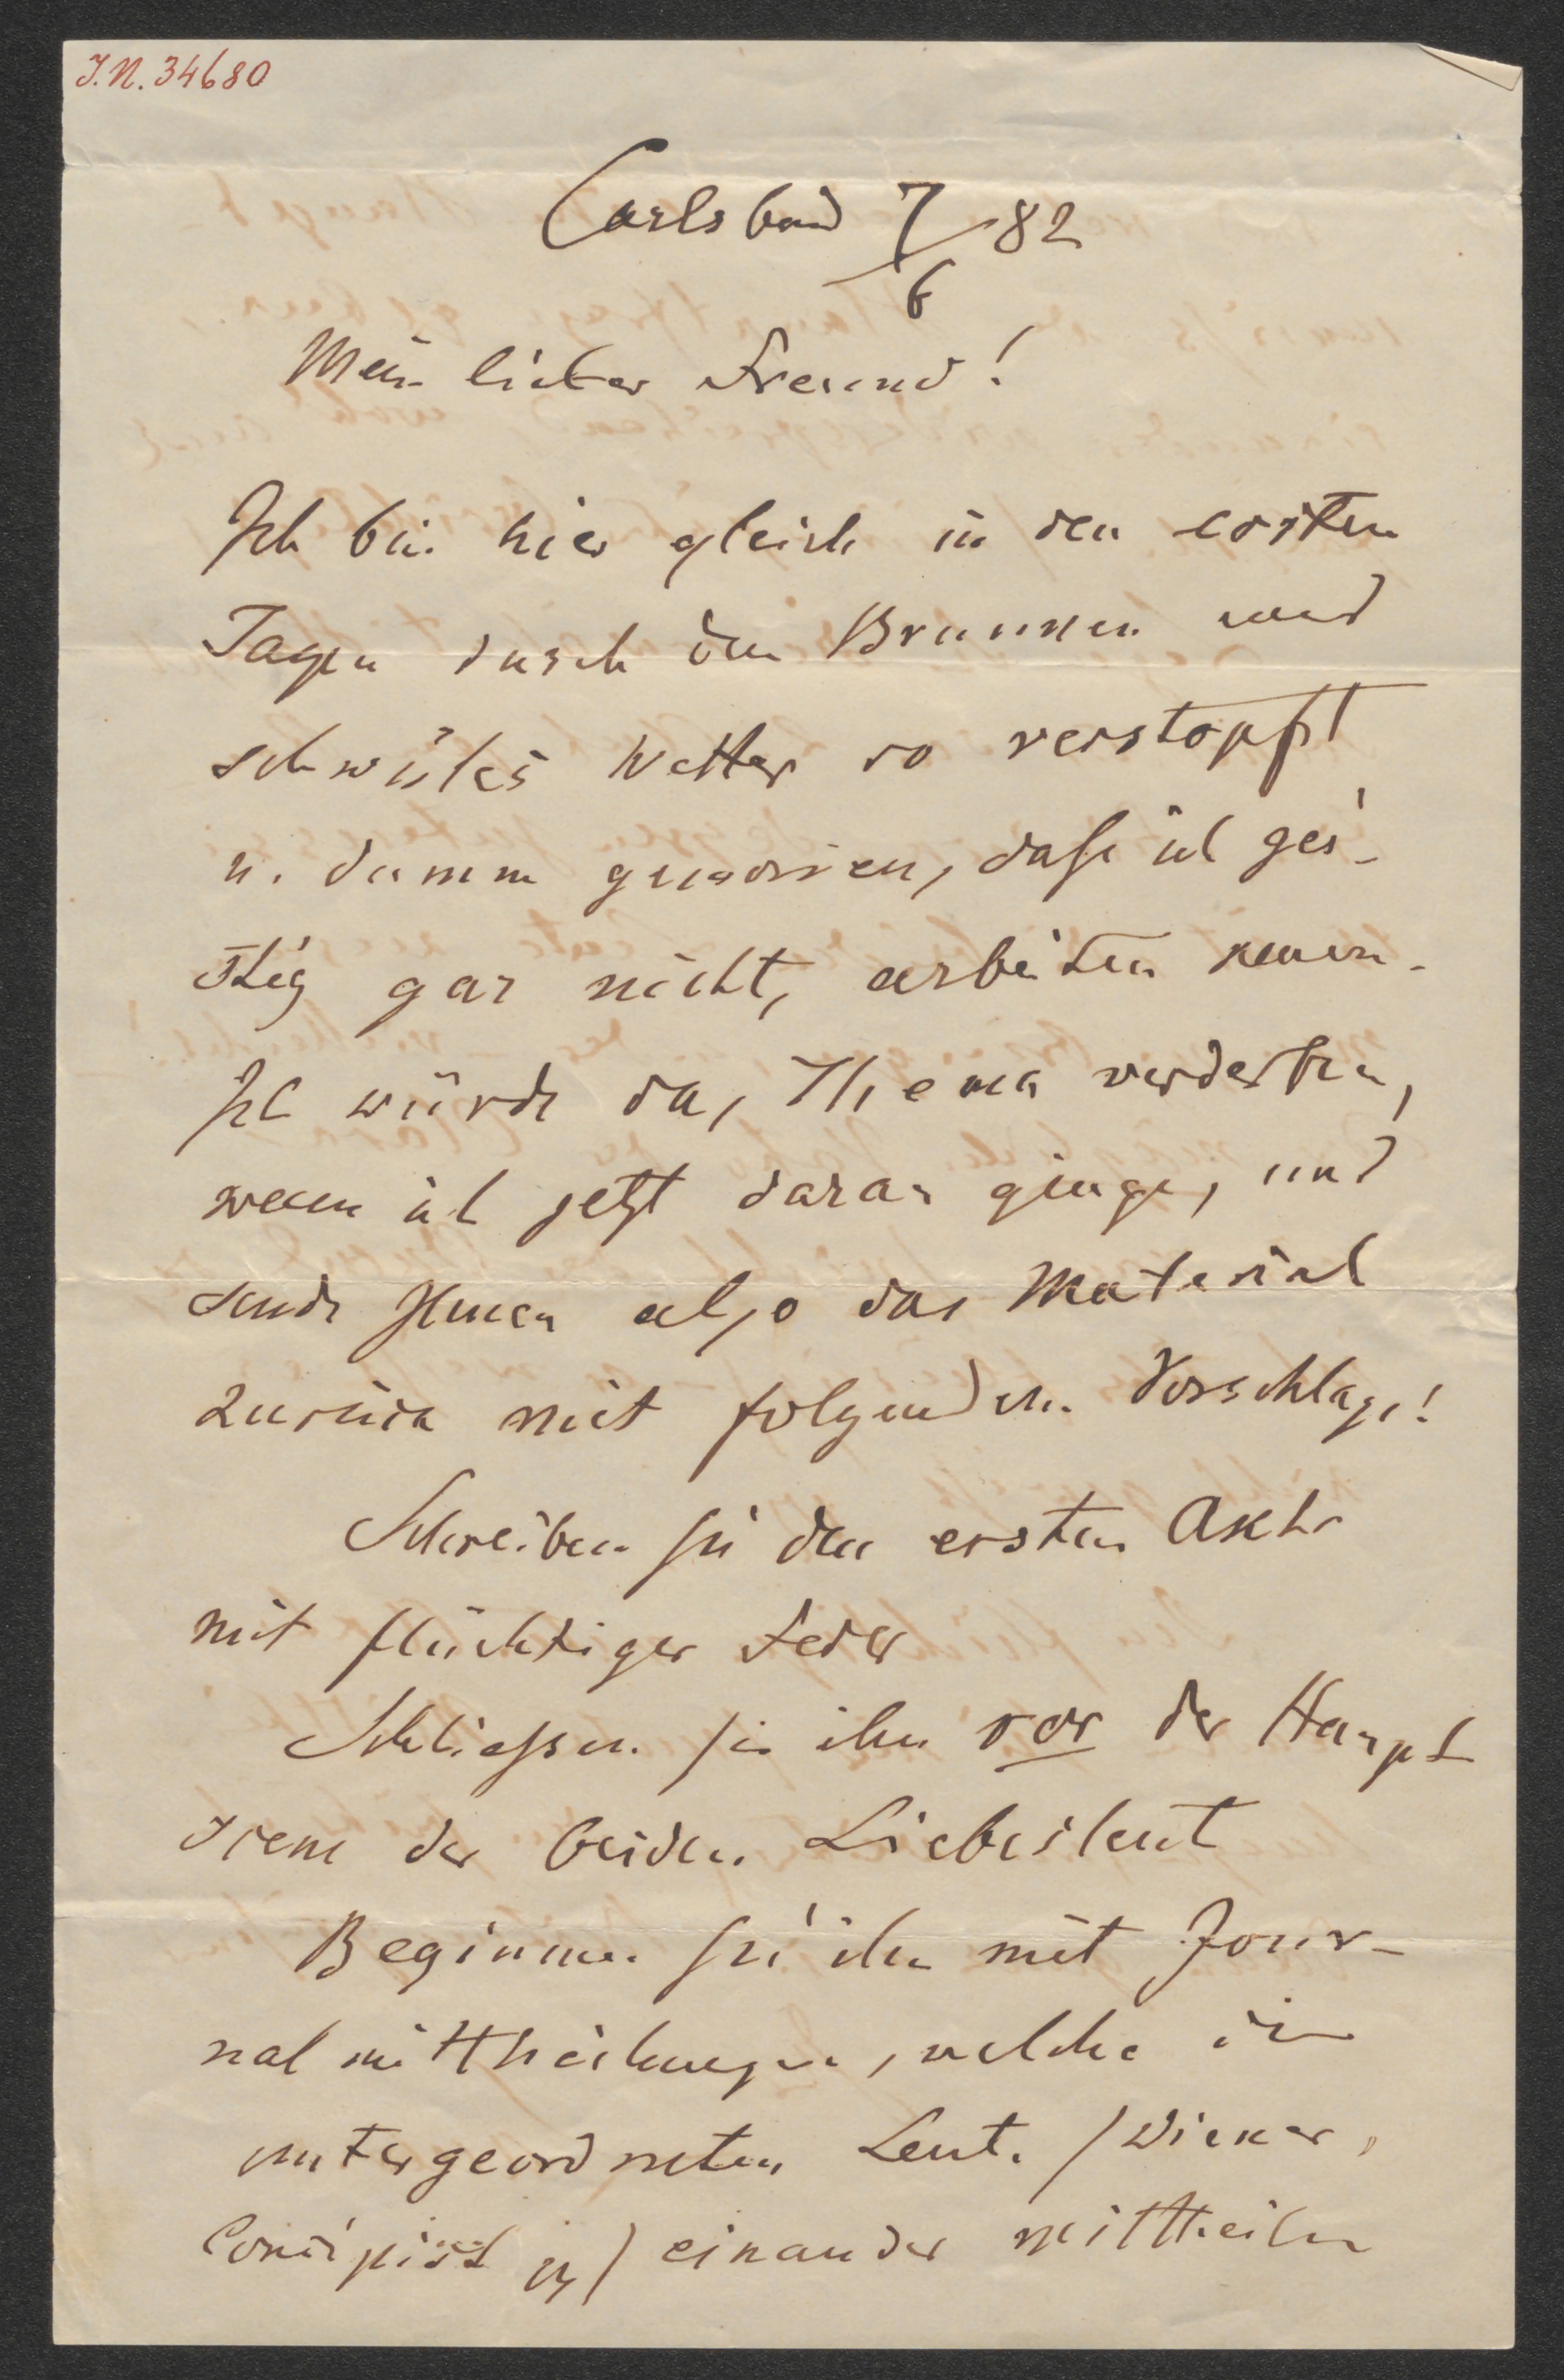 J.N. 34680
Carlsbad 7/6 82
Mein lieber Freund!
Ich bin hier gleich in den ersten
Tagen durch den Brunnen und
schwüles Wetter so verstopft
u. dumm geworden, daß ich gei-
stig gar nicht, arbeiten kann.
Ich würde das Thema verderben,
wenn ich jetzt daran ginge, und
sende Ihnen also das Material
zurück mit folgendem Vorschlage!
Schreiben Sie den ersten Akt
mit flüchtiger Feder
Schließen Sie ihn vor der Haupt
scene der beiden Liebesleut
Beginnen Sie ihn mit Jour-
nalmittheilungen, welche die
untergeordneten Leute /Diener,
Concipist / einander mittheilen